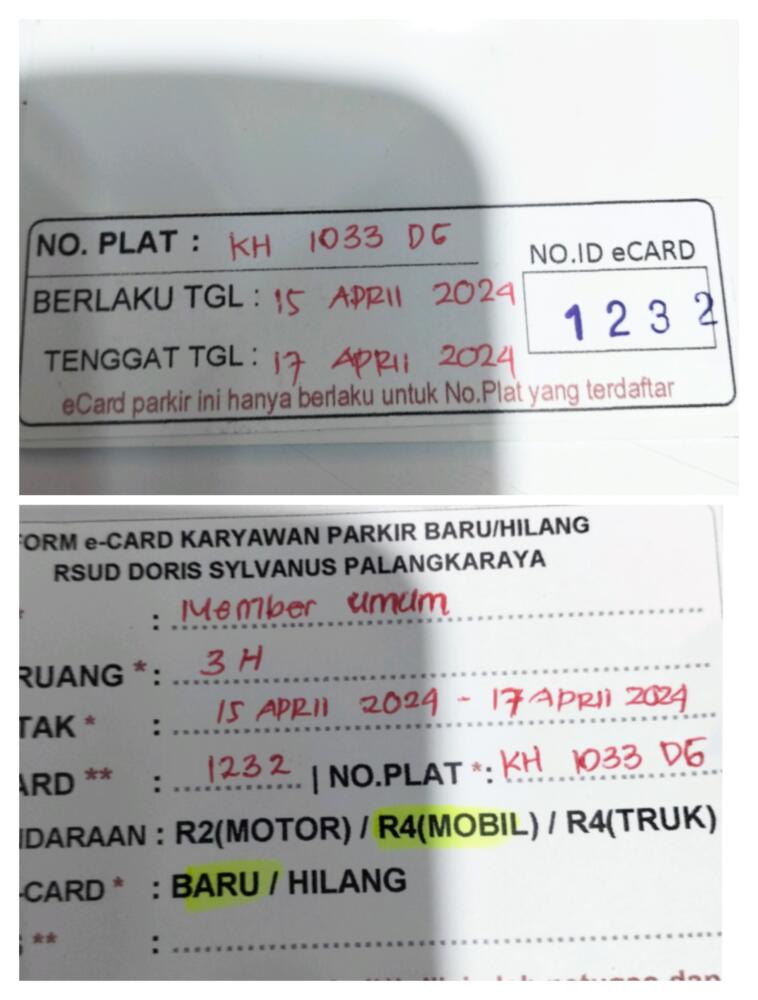 NO. PLAT : KH 1033 DG
NO.ID eCARD
BERLAKU TGL : 15 APRIl 2024
1232
TENGGAT TGL : 17 APRIl 2024
eCard parkir ini hanya berlaku untuk No.Plat yang terdaftar
ORM e-CARD KARYAWAN PARKIR BARU/HILANG
RSUD DORIS SYLVANUS PALANGKARAYA
* : Member umum
RUANG * : 3 H
TAK * : 15 APRIl 2024 - 17 APRIl 2024
ARD ** : 1232 | NO.PLAT * : KH 1033 DG
NDARAAN : R2(MOTOR) / R4(MOBIL) / R4(TRUK)
-CARD * : BARU / HILANG
** :